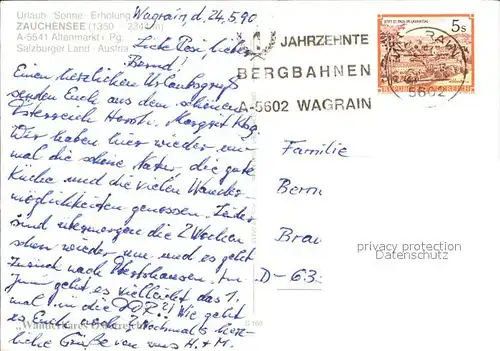 Urlaub · Sonne · Erholung
ZAUCHENSEE (1350 - 2340 m)
A-5541 Altenmarkt i. Pg.
Salzburger Land · Austria
Wagrain, d. 24.5.90
Liebe Resi, lieber
Bernd!
Einen herzlichen Urlaubsgruß
senden Euch aus dem schönen
Österreich Horst u. Margrit
Wir haben hier wieder ein-
mal die schöne Natur, die gute
Küche und die vielen Wander-
möglichkeiten genossen. Leider
sind übermorgen die 2 Wochen
schon wieder um und es geht
zurück nach Obertshausen. Im
Juni geht es vielleicht das 1.
mal in die DDR?! Wie geht
es Euch noch? Nochmals herz-
liche Grüße von uns H. + M.
„Wanderbares Österreich“
JAHRZEHNTE
BERGBAHNEN
A-5602 WAGRAIN
5 s
5602
REPUBLIK ÖSTERREICH
Familie
Bern
Brau
D-63
privacy protection
Datenschutz